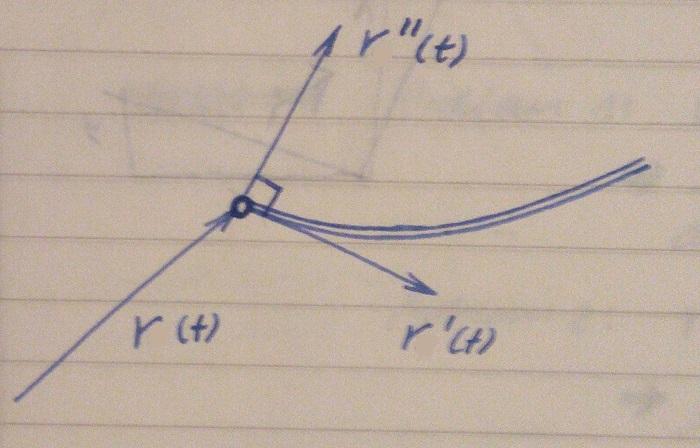 r''(t)
r(t)
r'(t)